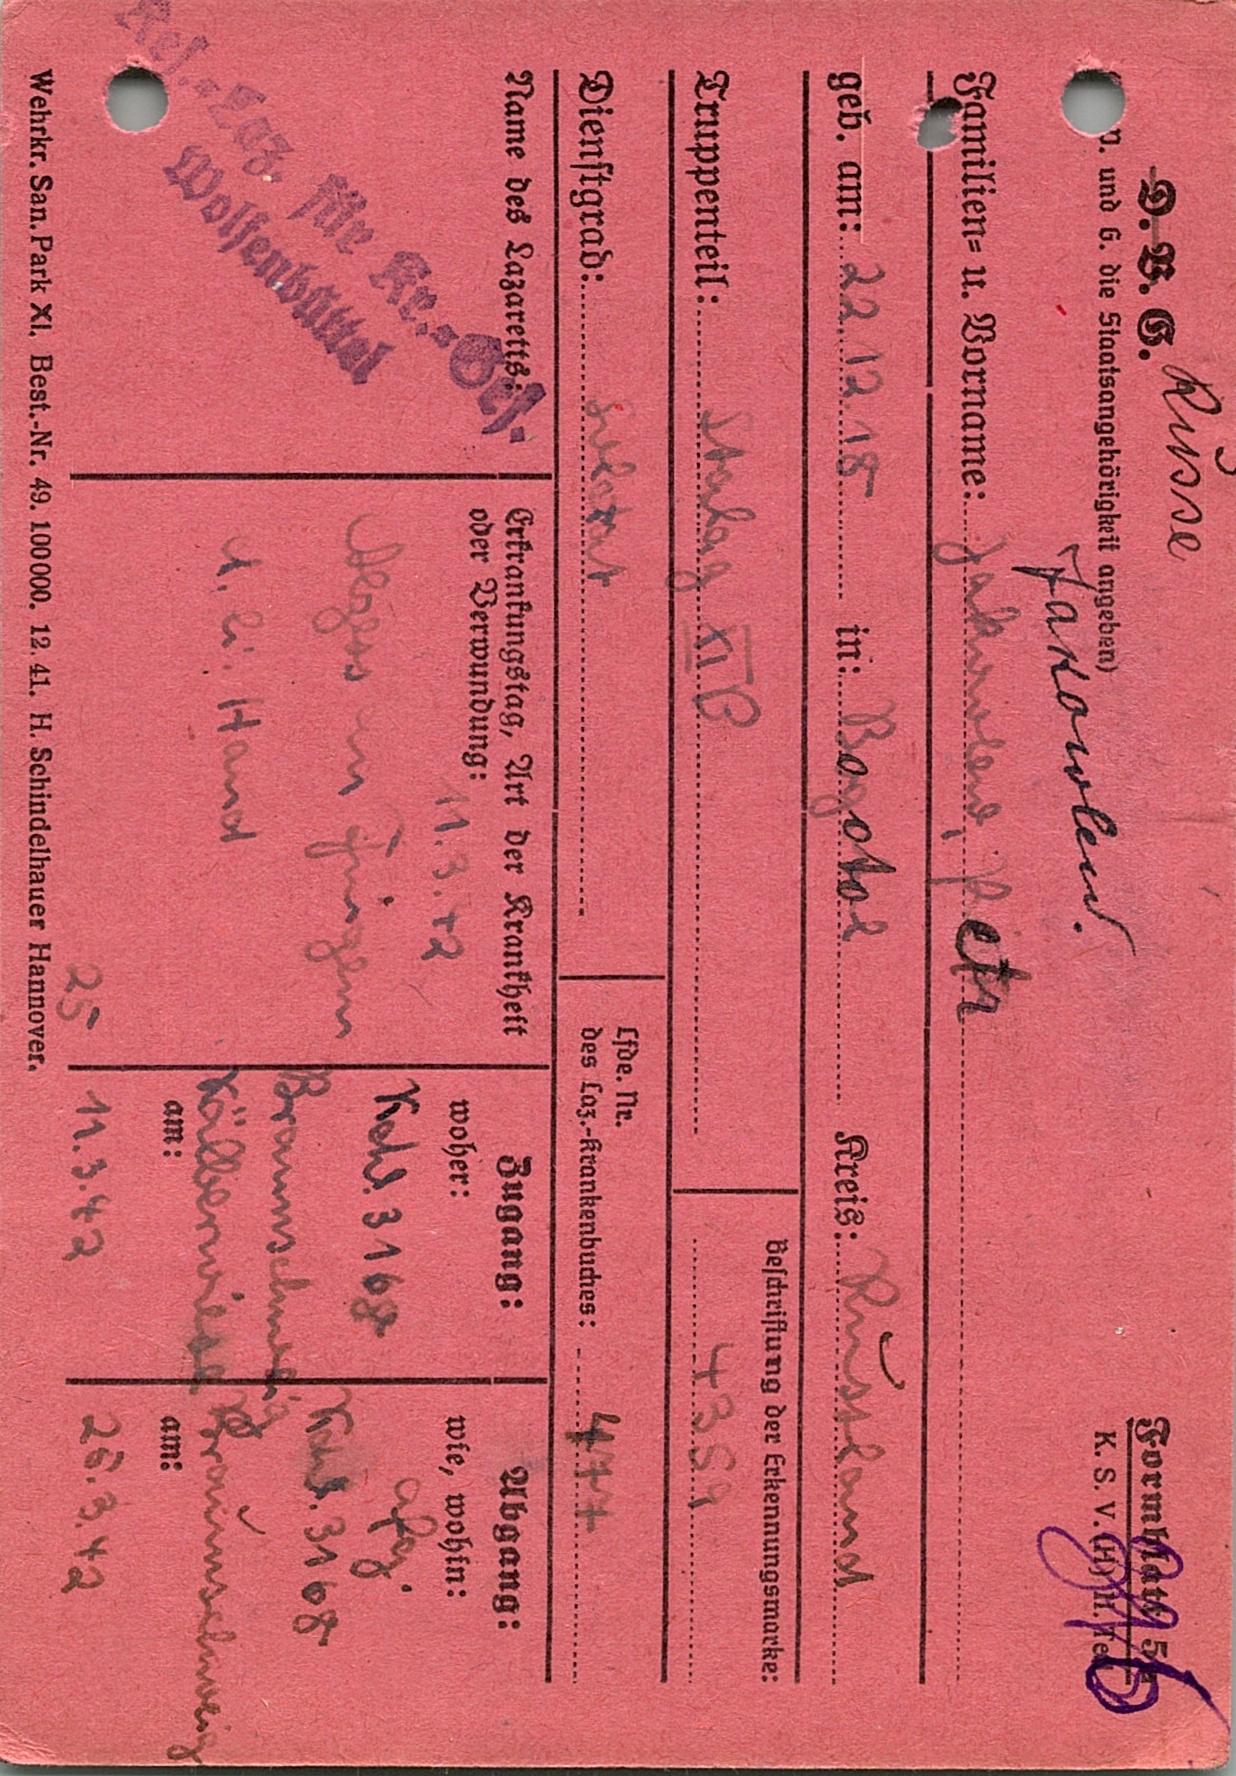 D. B. G. Russe
D. und G. die Staatsangehörigkeit angeben)
Formblatt 5
K. S. V. (H) II. Te
Jakowlew.
Familien= u. Vorname: Jakowlew, Petr
geb. am: 22.12.15 in: Bogotol Kreis: Russland
Truppenteil: Stalag XI B
Beschriftung der Erkennungsmarke:
4359
Dienstgrad: Soldat
Lfde. Nr.
des Laz.-Krankenbuches: 477
Name des Lazaretts:
Res.-Laz. für Kr.-Gef.
Wolfenbüttel
Erkrankungstag, Art der Krankheit
oder Verwundung:
11.3.42
Abzess am
d. li. Hand
25
Zugang:
woher:
Kdo. 3168
Braunschweig
am:
11.3.42
Abgang:
wie, wohin:
Kdo. 3168
Braunschweig
am:
25.3.42
Wehrkr. San. Park XI. Best.-Nr. 49. 100000. 12. 41. H. Schindelhauer Hannover.